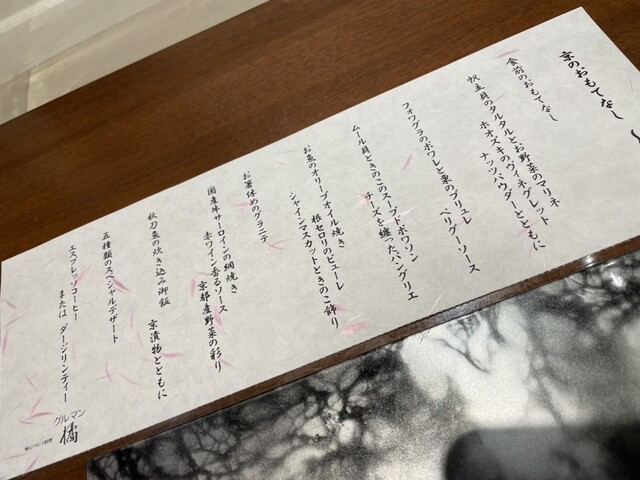 京のおもてなし
食前のおもてなし
帆立貝のタルタルとお野菜のマリネ
ホオズキのヴィネグレット
ナッツパウダーとともに
フォワグラのポワレと栗のブリュレ
ペリグーソース
ムール貝ときのこのスープドポワソン
チーズを纏ったパングリエ
お魚のオリーブオイル焼き
根セロリのピューレ
シャインマスカットときのこ飾り
お箸休めのグラニテ
国産牛サーロインの網焼き
赤ワイン香るソース
京都産野菜の彩り
秋刀魚の炊き込み御飯
京漬物とともに
五種類のスペシャルデザート
エスプレッソコーヒー
または ダージリンティー
グルマン
橘